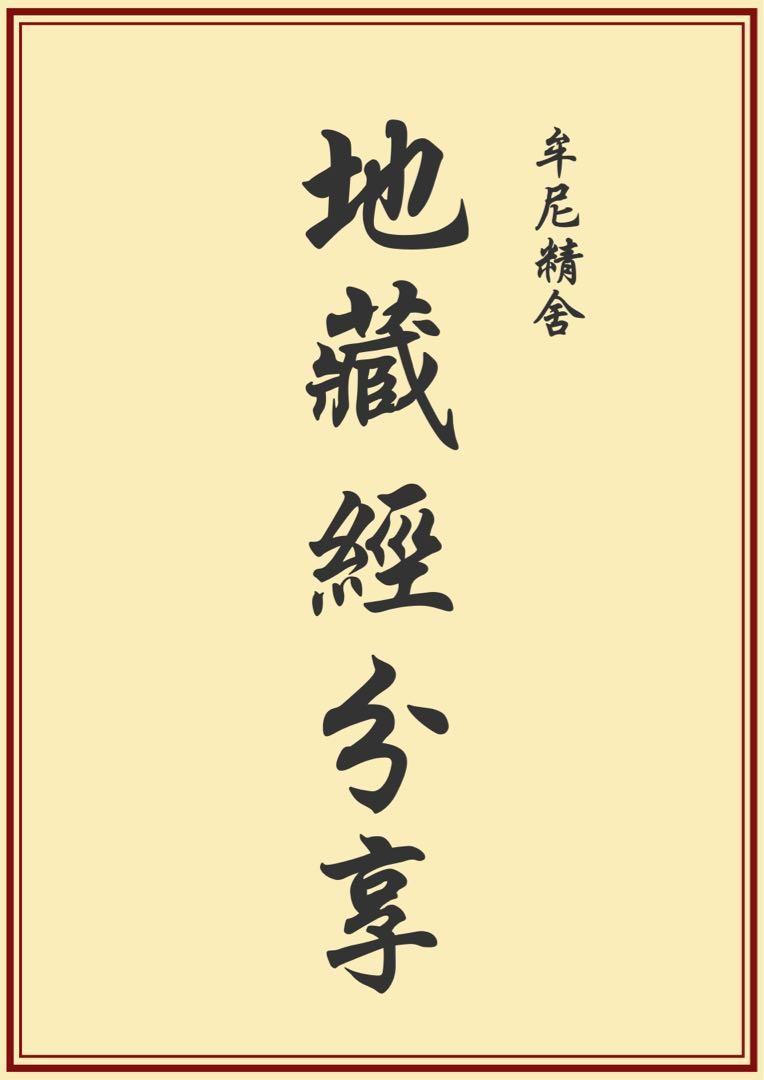 牟尼精舍
地藏經分享